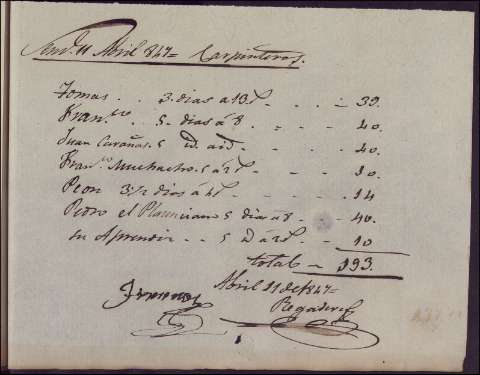 11 Abril 847= Carpinteros.
Tomas . . 3. dias a 13 r.s . . = 39.
Fran.co 5. dias á 8. . . - 40.
Juan 5 id. a id. . . - 40.
Fran.co Muchacho. 5 á 2 r.s . - 10
Peon 3 1/2 dias á 4 r.s . . - 14
Pedro el 5 dias á 8 . - 40.
su Aprendiz . . 5 id á 2 r.s . . 10
total = 193.
Abril 11 de 1847=